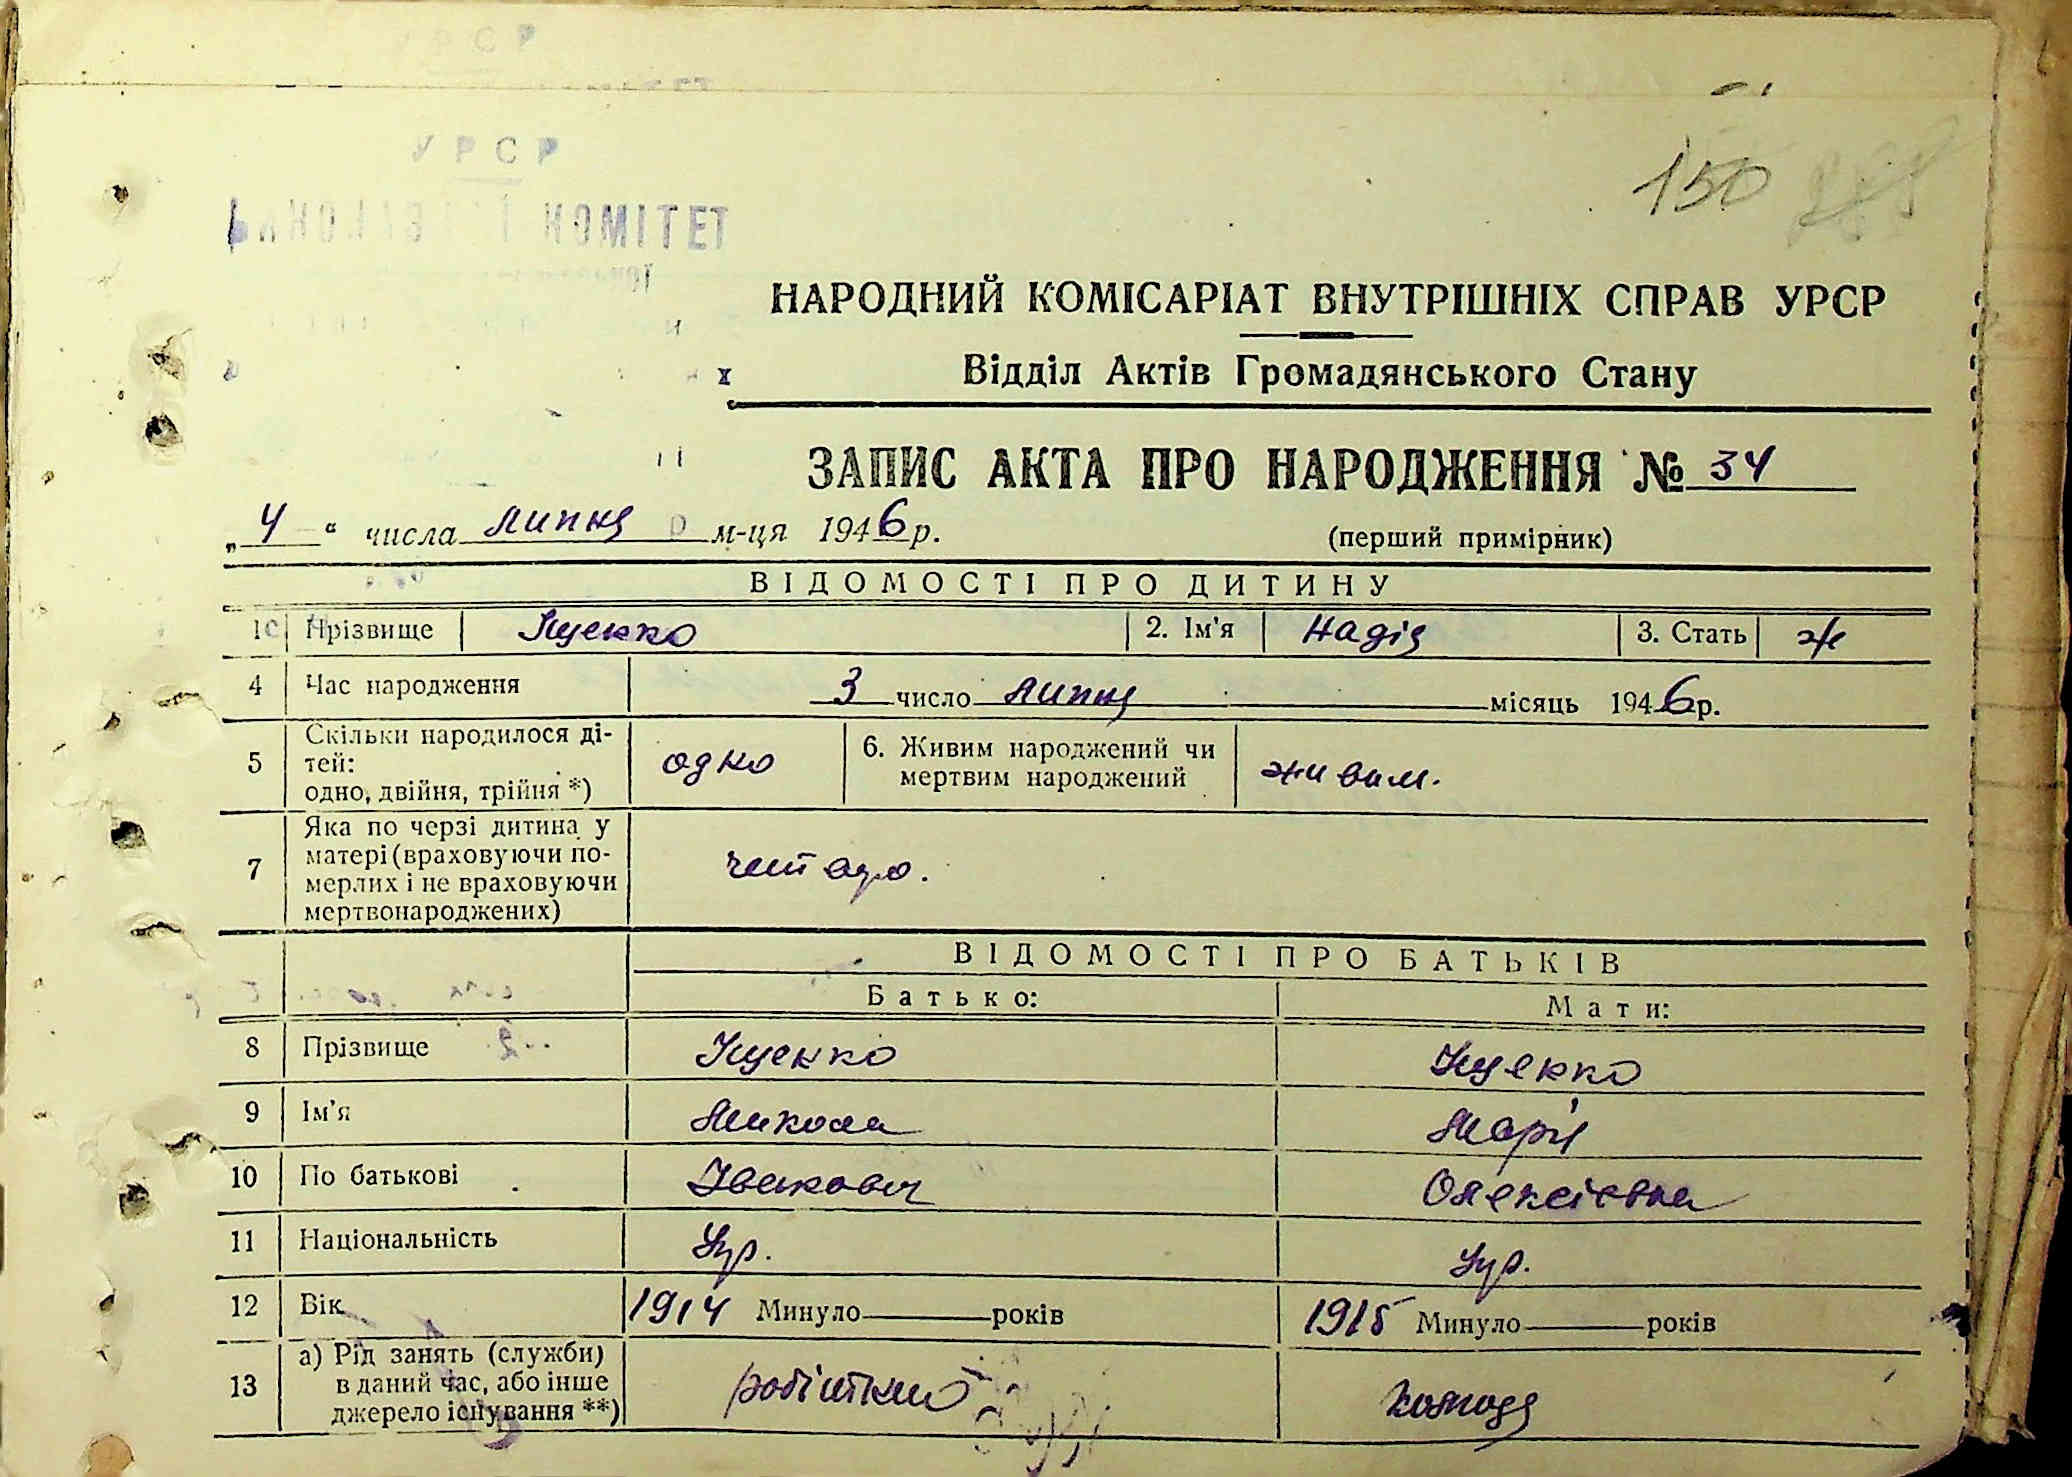 УРСР
КОМІТЕТ
150
НАРОДНИЙ КОМІСАРІАТ ВНУТРІШНІХ СПРАВ УРСР
Відділ Актів Громадянського Стану
ЗАПИС АКТА ПРО НАРОДЖЕННЯ № 34
„4“ числа липня м-ця 1946 р.
(перший примірник)
ВІДОМОСТІ ПРО ДИТИНУ
1 Прізвище Яценко 2. Ім'я Надія 3. Стать ж
4 Час народження 3 число липня місяць 1946 р.
5 Скільки народилося ді-
тей:
одно, двійня, трійня *) одно 6. Живим народжений чи
мертвим народжений живим.
7 Яка по черзі дитина у
матері (враховуючи по-
мерлих і не враховуючи
мертвонароджених)
ВІДОМОСТІ ПРО БАТЬКІВ
Батько: Мати:
8 Прізвище Яценко Яценко
9 Ім'я Микола Марія
10 По батькові Іванович Олексіївна
11 Національність Укр. Укр.
12 Вік 1914 Минуло років 1915 Минуло років
13 а) Рід занять (служби)
в даний час, або інше
джерело існування **) робітник